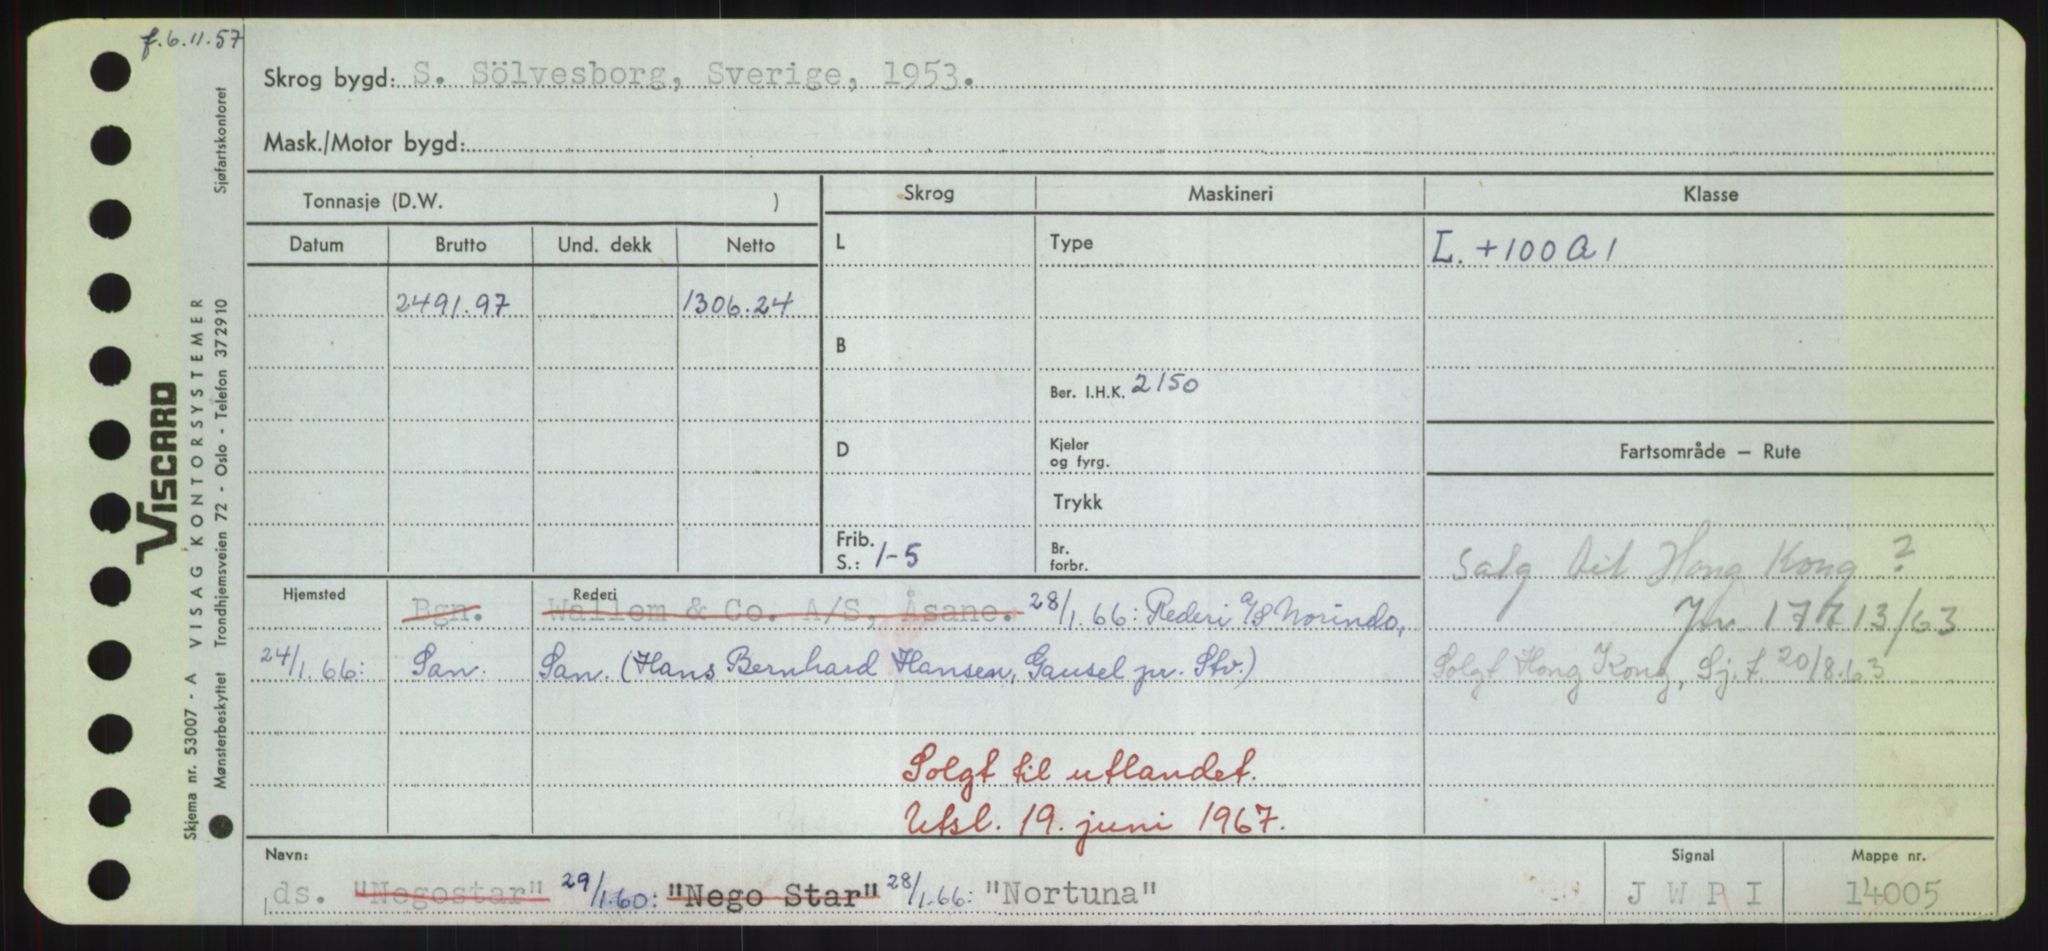 f. 6.11.57
Skrog bygd: S. Sölvesborg, Sverige, 1953.
Mask./Motor bygd:
Tonnasje (D.W. )
Skrog Maskineri Klasse
Datum Brutto Und. dekk Netto
L Type L. +100 A 1
2491.97 1306.24
B
Ber. I.H.K. 2150
D Kjeler og fyrg.
Fartsområde — Rute
Trykk
Frib. S.: 1-5
Br. forbr.
Salg til Hong Kong ?
Hjemsted Rederi
Bgn. Wallem & Co. A/S, Åsane. 28/1.66: Rederi A/S Norindo,
24/1.66: San. San. (Hans Bernhard Hansen, Gausel pr. Stv.)
Jnr. 17713/63
Solgt Hong Kong, Sj.t. 20/8.63
Solgt til utlandet.
Utsl. 19. juni 1967.
Navn: Signal Mappe nr.
ds. "Negostar" 29/1.60: "Nego Star" 28/1.66: "Nortuna" J W P I 14005
VISCARD
Skjema nr. 53007 - A VISAG KONTORSYSTEMER
Mønsterbeskyttet Trondhjemsveien 72 - Oslo - Telefon 372910 Sjøfartskontoret